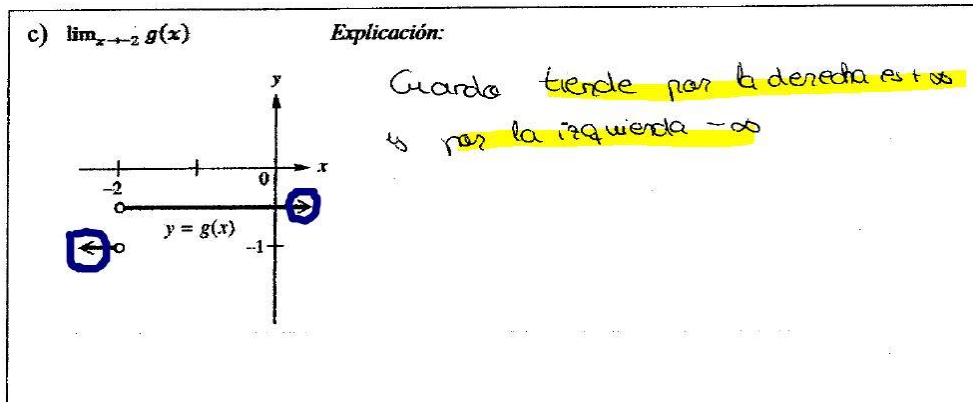 c) lim x→-2 g(x)
Explicación:
Cuando tiende por la derecha es +∞
y por la izquierda -∞
y
x
-2
0
y = g(x)
-1